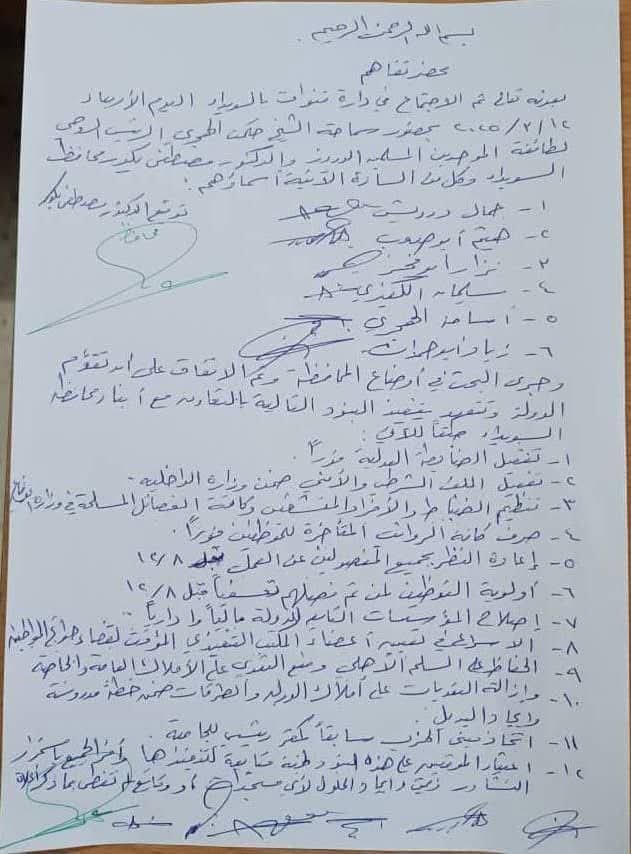 بسم الله الرحمن الرحيم
محضر تفاهم
بعونه تعالى تم الاجتماع في دارة قنوات بالسويداء اليوم الأربعاء
١٢/٣/٢٠٢٥ بحضور سماحة الشيخ حكمت الهجري الرئيس الروحي
لطائفة الموحدين المسلمين الدروز والدكتور مصطفى بكور محافظ
السويداء وكل من السادة الآتية أسماؤهم:
توقيع الدكتور مصطفى بكور
١- جمال درويش
٢- هيثم أبو صعوب
٣- نزار أبو فخر
٤- سليمان الكفيري
٥- أسامة الهجري
٦- زياد أبو حمدان
وجرى البحث في أوضاع المحافظة وتم الاتفاق على أن تقوم
الدولة وتتعهد بتنفيذ البنود التالية بالتعاون مع أبناء محافظة
السويداء وفقاً للآتي:
١- تفعيل الضابطة العدلية فوراً.
٢- تفعيل الملف الشرطي والأمني ضمن وزارة الداخلية.
٣- تنظيم الضباط والأفراد المنشقين وكافة الفصائل المسلحة في وزارة الدفاع
٤- صرف كافة الرواتب المتأخرة للموظفين فوراً.
٥- إعادة النظر بجميع المفصولين عن العمل قبل ١٢/٨
٦- أولوية التوظيف لمن تم فصلهم تعسفياً قبل ١٢/٨
٧- إصلاح المؤسسات التابعة للدولة مالياً وادارياً.
٨- الاسراع في تعيين أعضاء المكتب التنفيذي المؤقت لقضاء حوائج المواطنين
٩- الحفاظ على السلم الأهلي ومنع التعدي على الأملاك العامة والخاصة
١٠- وإزالة التعديات على أملاك الدولة والطرقات ضمن خطة مدروسة
وايجاد البديل.
١١- اتخاذ مبنى الحزب سابقاً كمقر رئيسي للجامعة.
١٢- اعتبار الموقعين على هذه البنود لجنة متابعة لتنفيذها